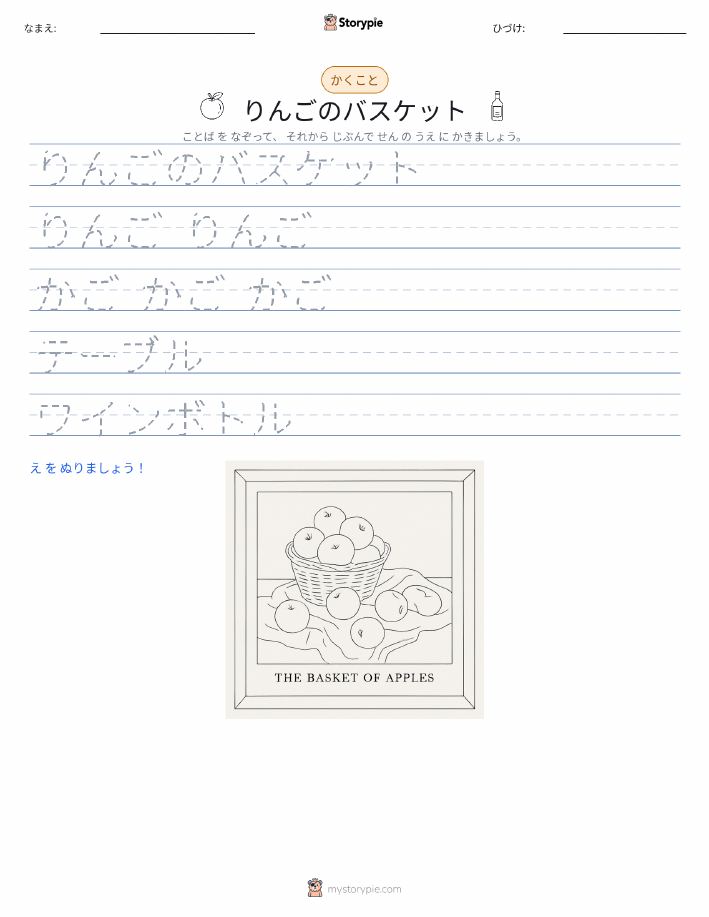 なまえ:
Storypie
ひづけ:
かくこと
りんごのバスケット
ことば を なぞって、 それから じぶんで せん の うえ に かきましょう。
りんごのバスケット
りんご りんご
かご かご かご
テーブル
ワインボトル
え を ぬりましょう!
THE BASKET OF APPLES
mystorypie.com